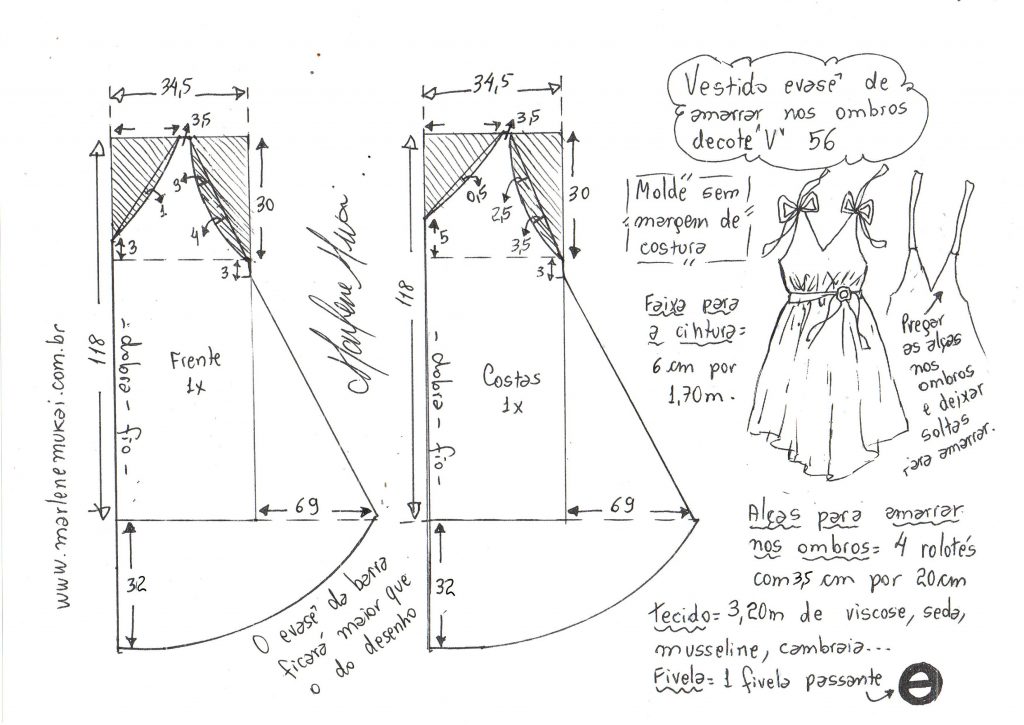 34,5
3,5
3
1
4
30
3
3
118
www.marlenemukai.com.br
= dobra - fio -
Frente
1x
69
32
O evasê da barra
ficará maior que
o do desenho
Marlene Mukai
34,5
3,5
0,5
2,5
3,5
30
5
3
118
- dobra - fio -
Costas
1x
69
32
Vestido evasê de
amarrar nos ombros
decote "V" 56
Molde sem
margem de
costura
Faixa para
a cintura=
6 cm por
1,70m.
Pregar
as alças
nos
ombros
e deixar
soltas
para amarrar.
Alças para amarrar
nos ombros= 4 rolotés
com 3,5 cm por 20cm
Tecido= 3,20m de viscose, seda,
musseline, cambraia...
Fivela= 1 fivela passante